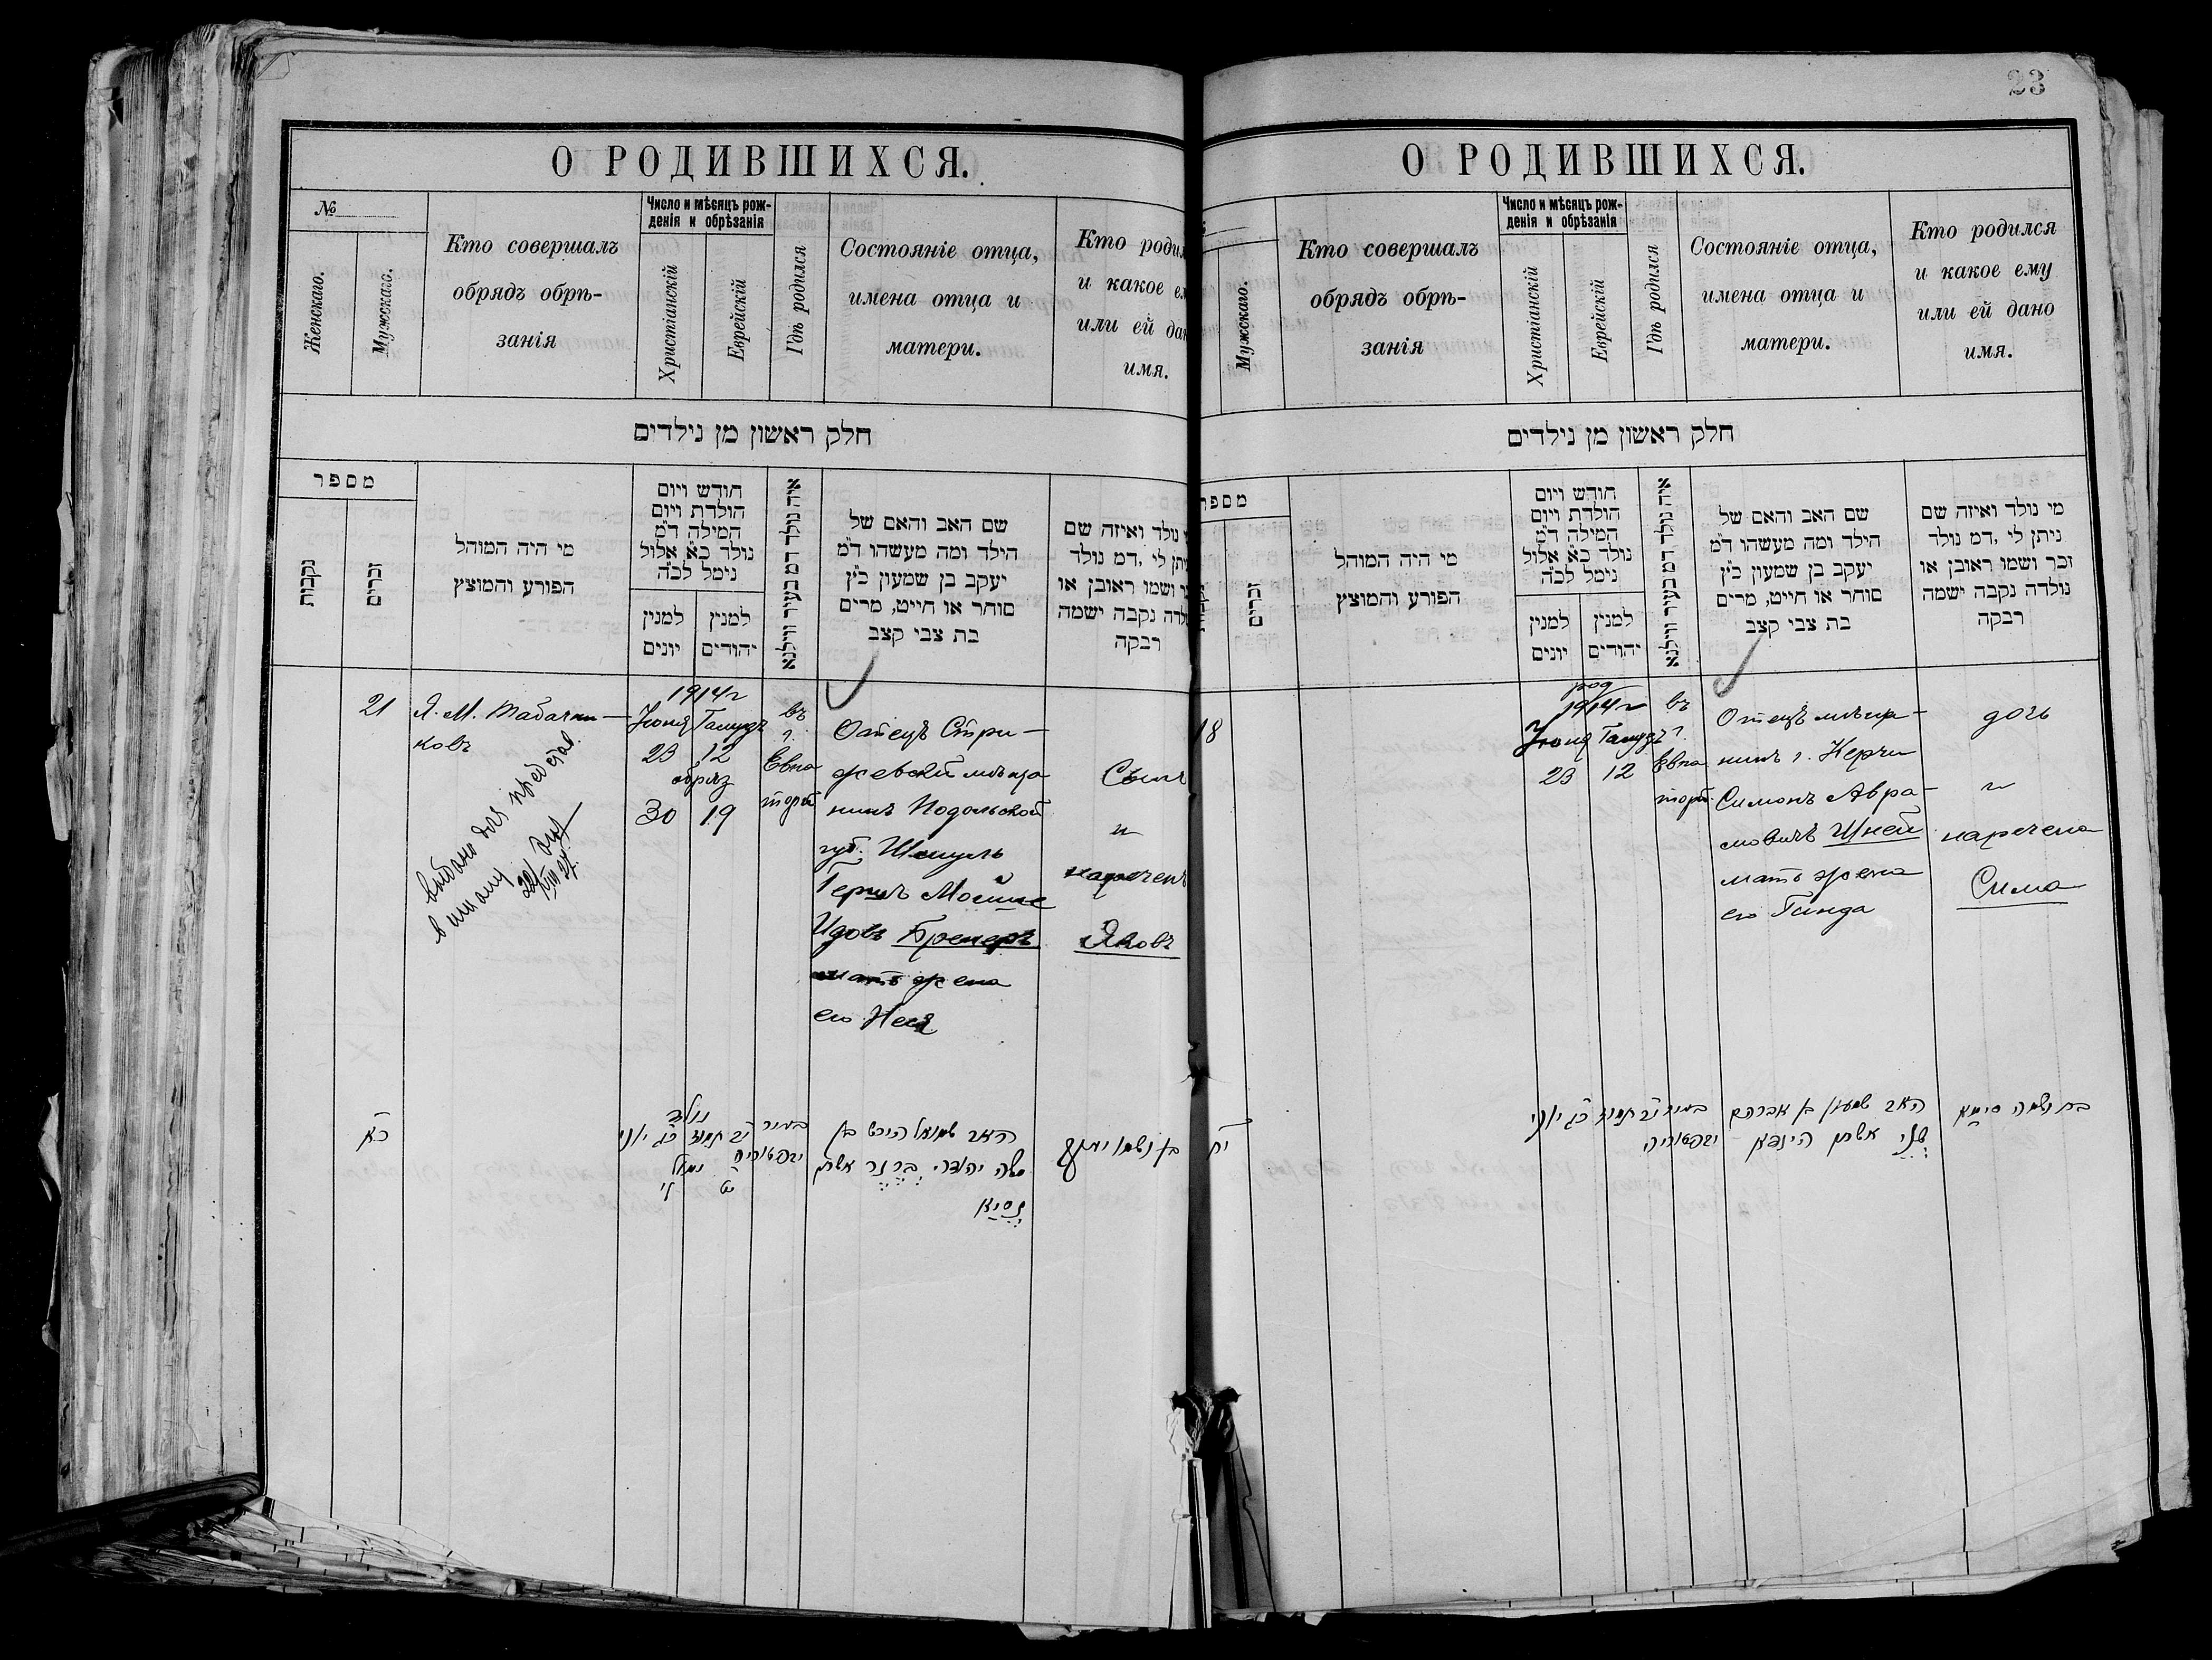 О РОДИВШИХСЯ.
№
Женскаго.
Мужскаго.
Кто совершалъ
обрядъ обрѣ-
занія
Число и мѣсяцъ рож-
денія и обрѣзанія
Христіанскій
Еврейскій
Гдѣ родился
Состояніе отца,
имена отца и
матери.
Кто родил
и какое ем
или ей дан
имя.
חלק ראשון מן נילדים
מספר
נקבות
זכרים
מי היה המוהל
הפורע והמוצץ
חודש ויום
הולדת ויום
המילה ד״מ
נולד כ״א אלול
נימל לכ״ה
למנין
יונים
למנין
יהודים
איה נולד דמ בעיר ווילנא
שם האב והאם של
הילד ומה מעשהו ד״מ
יעקב בן שמעון כ״ץ
סוחר או חייט, מרים
בת צבי קצב
נולד ואיזה שם
תן לי ,דמ נולד
ושמו ראובן או
לדה נקבה ישמה
רבקה
21
Я. М. Табачни-
ковъ
1914 г
Іюня Тамузъ
23 12
обрѣз
30 19
въ
г.
Евпа
торіи
Отецъ Стри-
жевскій мѣща
нинъ Подольской
губ. Шмуль
Гершъ Мойше
Идовъ Бренеръ
мать жена
его Неся
Сынъ
и
нареченъ
Яковъ
выдано для представ.
в школу
22/VIII 27.
כא
נולד
כ״ג יוני
י״ב תמוז
נמול
בעיר
יבפטוריה
האב שמואל הירש בן
משה יהודה ברנר אשתו
נסיא
בן ושמו יעקב
23
О РОДИВШИХСЯ.
Мужскаго.
Кто совершалъ
обрядъ обрѣ-
занія
Число и мѣсяцъ рож-
денія и обрѣзанія
Христіанскій
Еврейскій
Гдѣ родился
Состояніе отца,
имена отца и
матери.
Кто родился
и какое ему
или ей дано
имя.
חלק ראשון מן נילדים
מספר
זכרים
מי היה המוהל
הפורע והמוצץ
חודש ויום
הולדת ויום
המילה ד״מ
נולד כ״א אלול
נימל לכ״ה
למנין
יונים
למנין
יהודים
איה נולד דמ בעיר ווילנא
שם האב והאם של
הילד ומה מעשהו ד״מ
יעקב בן שמעון כ״ץ
סוחר או חייט, מרים
בת צבי קצב
מי נולד ואיזה שם
ניתן לי ,דמ נולד
זכר ושמו ראובן או
נולדה נקבה ישמה
רבקה
18
род
1914 г
Іюня Тамузъ
23 12
въ
г.
Евпа
торіи.
Отецъ мѣща-
нинъ г. Керчи
Симонъ Авра-
мовичъ Шней
мать жена
его Гинда
дочь
и
наречена
Сима
יח
כ״ג יוני
י״ב תמוז
בעיר
יבפטוריה
האב שמעון בן אברהם
שניי אשתו הינדא
בת ושמה סימא